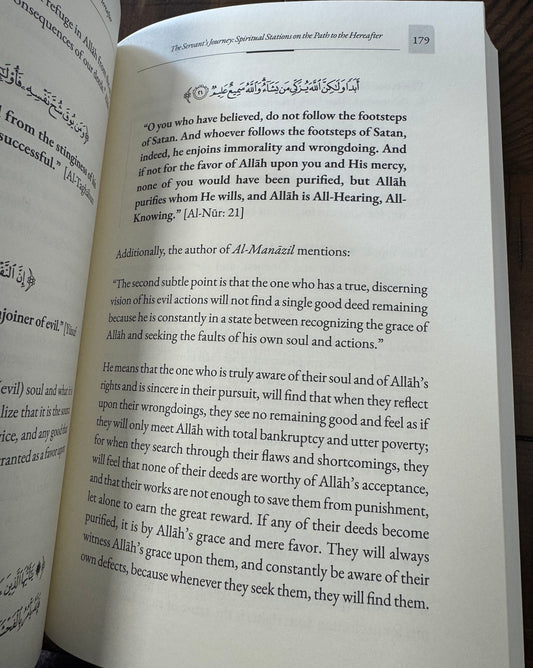 refuge in Allāh from
onsequences of our
from the stinginess of his
successful.” [Al-Taghābun
njoiner of evil.” [Yūsuf
(evil) soul and what is
lize that it is the source
rice, and any good that
ranted as a favor upon
The Servant’s Journey: Spiritual Stations on the Path to the Hereafter
179
أَبَدًا وَلَٰكِنَّ ٱللَّهَ يُزَكِّي مَن يَشَآءُ وَٱللَّهُ سَمِيعٌ عَلِيمٌ ﴿٢١﴾
“O you who have believed, do not follow the footsteps
of Satan. And whoever follows the footsteps of Satan,
indeed, he enjoins immorality and wrongdoing. And
if not for the favor of Allāh upon you and His mercy,
none of you would have been purified, but Allāh
purifies whom He wills, and Allāh is All-Hearing, All-
Knowing.” [Al-Nūr: 21]
Additionally, the author of Al-Manāzil mentions:
“The second subtle point is that the one who has a true, discerning
vision of his evil actions will not find a single good deed remaining
because he is constantly in a state between recognizing the grace of
Allāh and seeking the faults of his own soul and actions.”
He means that the one who is truly aware of their soul and of Allāh’s
rights and is sincere in their pursuit, will find that when they reflect
upon their wrongdoings, they see no remaining good and feel as if
they will only meet Allāh with total bankruptcy and utter poverty;
for when they search through their flaws and shortcomings, they
will feel that none of their deeds are worthy of Allāh’s acceptance,
and that their works are not enough to save them from punishment,
let alone to earn the great reward. If any of their deeds become
purified, it is by Allāh’s grace and mere favor. They will always
witness Allāh’s grace upon them, and constantly be aware of their
own defects, because whenever they seek them, they will find them.